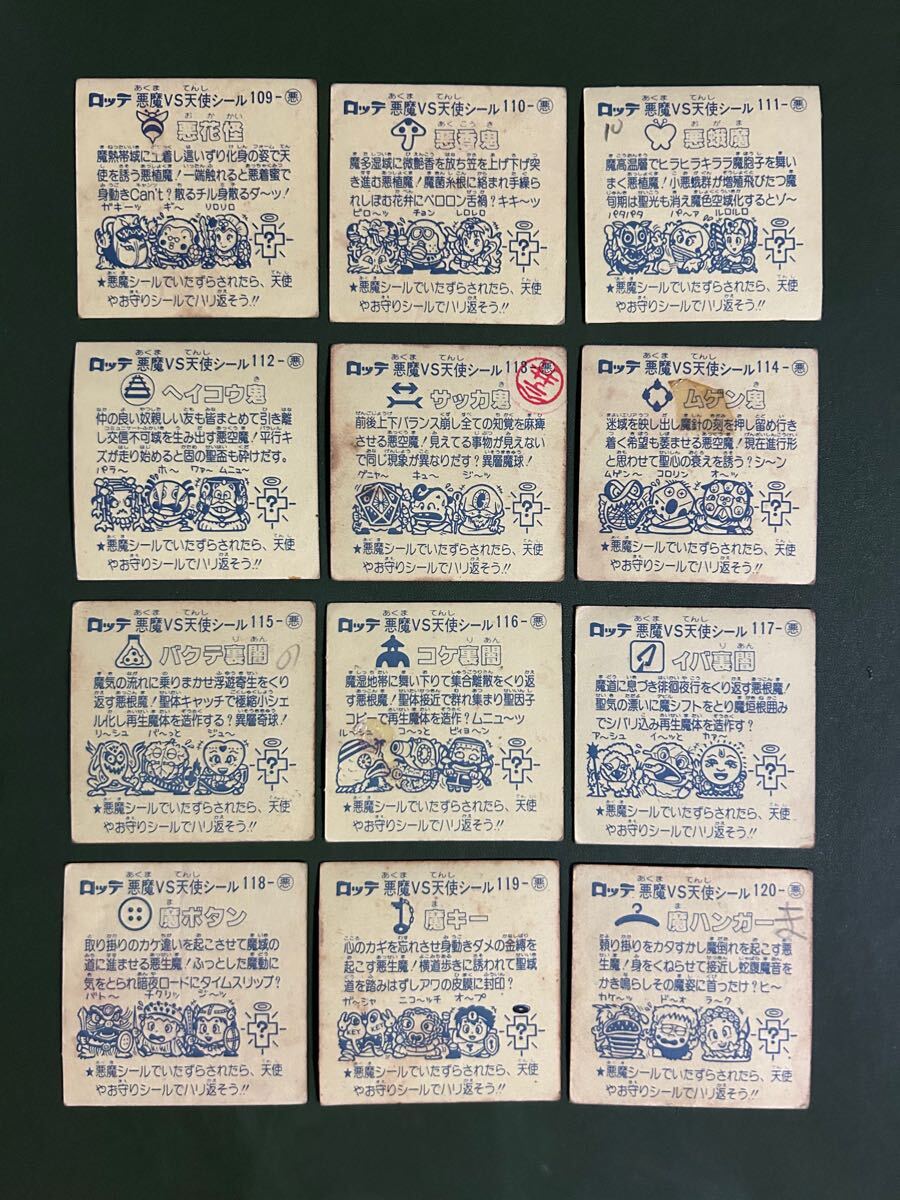 ロッテ 悪魔VS天使シール 109-悪
あくま てんし
悪花怪
お か かい
魔熱帯域に土着し這いずり化身の姿で天
使を誘う悪植魔!一端触れると悪着蜜で
身動きCan't?散るチル身散るダ〜ッ!
ガキーッ ギ〜 リロリロ
?
★悪魔シールでいたずらされたら、天使
やお守りシールでハリ返そう!!
ロッテ 悪魔VS天使シール 110-悪
あくま てんし
悪香鬼
あく こう き
魔多湿域に微艶香を放ち笠を上げ下げ突
き進む悪植魔!魔菌糸根に絡まれ手繰ら
れしぼむ花弁にペロロン舌禍?キキ〜ツ
ピロ〜ッ チョン レロレロ
?
★悪魔シールでいたずらされたら、天使
やお守りシールでハリ返そう!!
ロッテ 悪魔VS天使シール 111-悪
あくま てんし
10
悪蛾魔
お が ま
魔高温層でヒラヒラキララ魔胞子を舞い
まく悪植魔!小悪蛾群が増殖飛びたつ魔
旬期は聖光も消え魔色空域化するとゾ〜
パタパタ パ〜ァ ルロルロ
?
★悪魔シールでいたずらされたら、天使
やお守りシールでハリ返そう!!
ロッテ 悪魔VS天使シール 112-悪
あくま てんし
ヘイコウ鬼
き
仲の良い奴親しい友も皆まとめて引き離
し交信不可域を生み出す悪空魔!平行キ
ズが走り始めると固の聖盃も砕けだす。
パラ〜 ホ〜 ワァー ムニュ〜
?
★悪魔シールでいたずらされたら、天使
やお守りシールでハリ返そう!!
ロッテ 悪魔VS天使シール 113-
あくま てんし
サッカ鬼
き
前後上下バランス崩し全ての知覚を麻痺
させる悪空魔!見えてる事物が見えない
で同じ現象が異なりだす?異層魔球!
グニャ〜 キュ〜 ジ〜ッ
?
★悪魔シールでいたずらされたら、天使
やお守りシールでハリ返そう!!
ロッテ 悪魔VS天使シール 114-悪
あくま てんし
ムゲン鬼
き
迷域を映し出し魔針の刻を押し留め行き
着く希望も萎ませる悪空魔!現在進行形
と思わせて聖心の衰えを誘う?シ〜ン
ムゲン〜 コロリン オ〜ッ
?
★悪魔シールでいたずらされたら、天使
やお守りシールでハリ返そう!!
ロッテ 悪魔VS天使シール 115-悪
あくま てんし
バクテ裏闇
り あん
魔気の流れに乗りまかせ浮遊寄生をくり
返す悪根魔!聖体キャッチで極縮小シェ
ル化し再生魔体を造作する?異層奇球!
リ〜シュ パ〜っと ジュ〜
?
★悪魔シールでいたずらされたら、天使
やお守りシールでハリ返そう!!
ロッテ 悪魔VS天使シール 116-悪
あくま てんし
コケ裏闇
り あん
魔湿地帯に舞い下りて集合離散をくり返
す悪根魔!聖体接近で群れ集まり聖因子
コピーで再生魔体を造作?ムニュ〜ッ
コ〜っと ピィヨヘン
?
★悪魔シールでいたずらされたら、天使
やお守りシールでハリ返そう!!
ロッテ 悪魔VS天使シール 117-悪
あくま てんし
イバ裏闇
り あん
魔道に息づき徘徊夜行をくり返す悪根魔!
聖気の漂いに魔シフトをとり魔垣根囲み
でシバリ込み再生魔体を造作する?
ア〜シュ イ〜ッと カァ〜
?
★悪魔シールでいたずらされたら、天使
やお守りシールでハリ返そう!!
ロッテ 悪魔VS天使シール 118-悪
あくま てんし
魔ボタン
ま
取り掛りのカケ違いを起こさせて魔域の
道に進ませる悪生魔!ふっとした魔動に
気をとられ暗夜ロードにタイムスリップ?
パト〜 チクリッ ジ〜ッ
?
★悪魔シールでいたずらされたら、天使
やお守りシールでハリ返そう!!
ロッテ 悪魔VS天使シール 119-悪
あくま てんし
魔キー
ま
心のカギを忘れさせ身動きダメの金縛を
起こす悪生魔!横道歩きに誘われて聖域
道を踏みはずしアワの皮膜に封印?
ガ〜シャ ニコ〜ッチ オ〜プ
KEY KEY
?
★悪魔シールでいたずらされたら、天使
やお守りシールでハリ返そう!!
ロッテ 悪魔VS天使シール 120-悪
あくま てんし
魔ハンガー
ま
頼り掛りをカタすかし魔倒れを起こす悪
生魔!身をくねらせて接近し蛇腹魔音を
かき鳴らしその魔姿に首ったけ?ヒ〜
カケ〜ッ ド〜オ ラ〜ク
?
★悪魔シールでいたずらされたら、天使
やお守りシールでハリ返そう!!